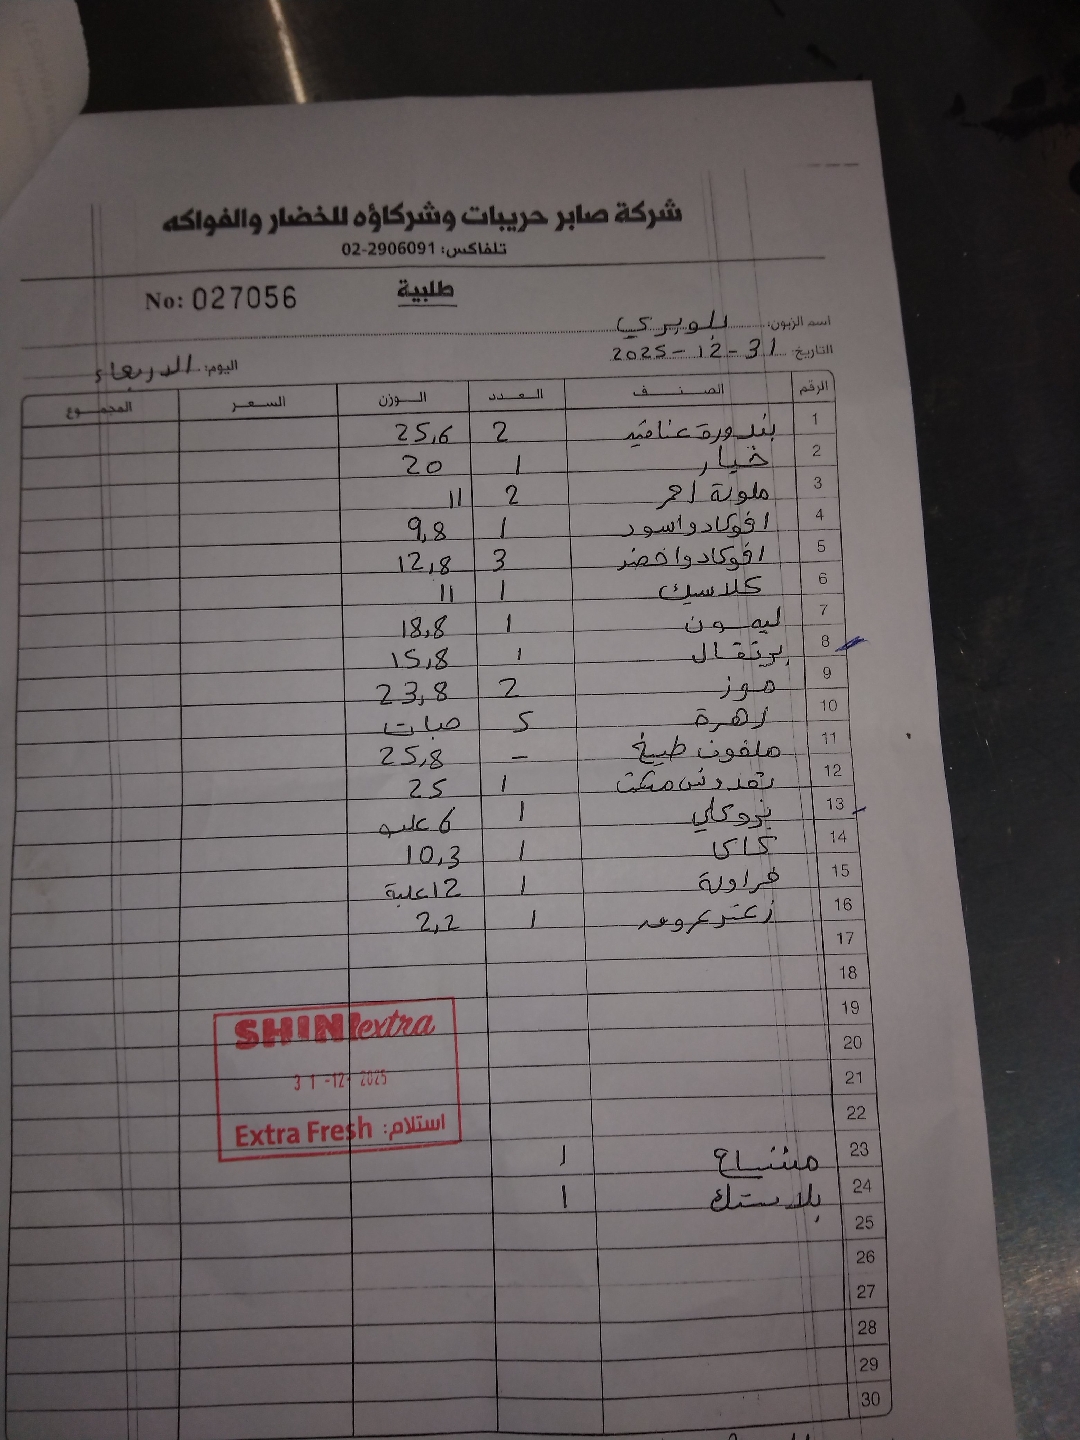 شركة صابر حريبات وشركاؤه للخضار والفواكه
تلفاكس: 02-2906091
طلبية
No: 027056
اسم الزبون:
التاريخ: 31-12-2025
اليوم: الاربعاء
الرقم الصنف العدد الوزن السعر المجموع
1 بندورة عناقيد 2 25,6
2 خيار 1 20
3 ملونة احمر 2 11
4 افوكادو اسود 1 9,8
5 افوكادو اخضر 3 12,8
6 كلاسيك 1 11
7 ليمون 1 18,8
8 برتقال 1 15,8
9 موز 2 23,8
10 زهرة 5 حبات
11 ملفوف طبيخ - 25,8
12 بقدونس 1 25
13 بروكلي 1 6 علب
14 كاكا 1 10,3
15 فراولة 1 12 علبة
16 زعتر 1 2,2
17
18
19
20
21
22
23 مشتاح 1
24 بلاستك 1
25
26
27
28
29
30
SHINI extra
31-12-2025
استلام: Extra Fresh